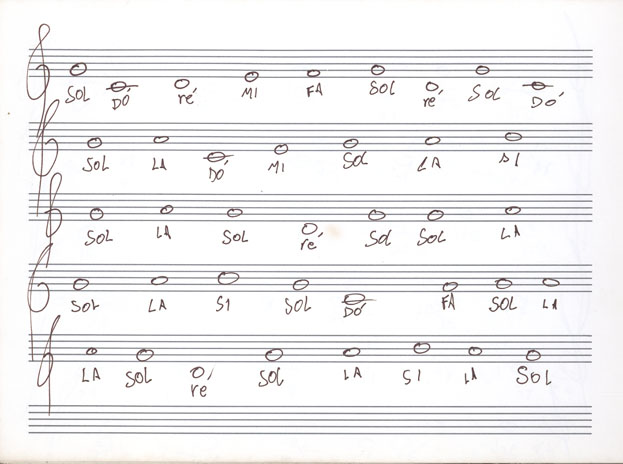 SOL DÓ ré MI FA SOL ré SOL DÓ
SOL LA DÓ MI Sol LA SI
SOL LA SOL ré Sol SOL LA
SOL LA SI SOL DÓ FA SOL LA
LA SOL ré SOL LA SI LA SOL